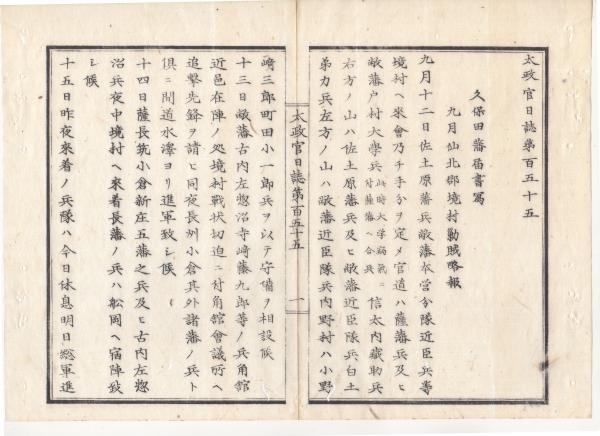 太政官日誌第百五十五
久保田藩届書冩
九月仙北郡境村勦賊略報
九月十二日佐土原藩兵敝藩本営分隊近臣兵等
境村ヘ來會乃チ手分ヲ定メ官道ハ薩藩兵及ヒ
敝藩戸村大學兵 此時大学病氣ニ付薩藩ヘ合兵 信太内藏助兵
右方ノ山ハ佐土原藩兵及ヒ敝藩近臣隊兵白土
弟力兵左方ノ山ハ敝藩近臣隊兵内野村ハ小野
太政官日誌第百五十五
一
崎三郎町田小一郎兵ヲ以テ守備ヲ相設候
十三日敝藩古内左惣治寺崎藤九郎等ノ兵角館
近邑在陣ノ処境村戦状切迫ニ付角館會議所ヘ
追撃先鋒ヲ請ヒ同夜長州小倉其外諸藩ノ兵ト
倶ニ間道水澤ヨリ進軍致シ候
十四日薩長筑小倉新庄五藩之兵及ヒ古内左惣
治兵夜中境村ヘ來着長藩ノ兵ハ舩岡ヘ宿陣致
シ候
十五日昨夜來着ノ兵隊ハ今日休息明日総軍進